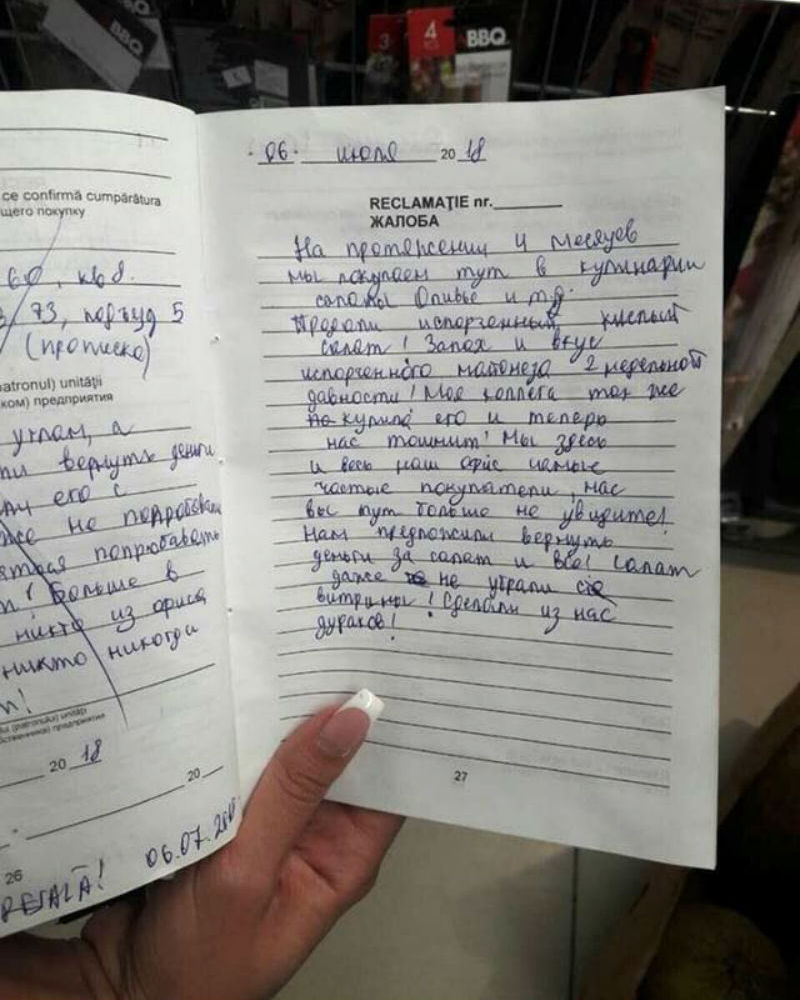 BBQ
3
4
BBQ
ce confirmă cumpărătura
щего покупку
60, кв 8.
73, подъезд 5
(прописка)
patronul) unității
ком) предприятия
углам, а
вернуть деньги
его с
не попробовали
попробовать
Больше в
никто из офиса
никто никогда
(patronului) unității
20 18
20
26
06.07.
06. июля 20 18
RECLAMAŢIE nr.
ЖАЛОБА
На протяжении 4 месяцев
мы покупаем тут в кулинарии
салаты Оливье и т.д.
Продали испорченный кислый
салат! Запах и вкус
испорченного майонеза 2 недельной
давности! Моя коллега так же
купила его и теперь
нас тошнит! Мы здесь
и весь наш офис самые
частые покупатели, нас
вы тут больше не увидите!
Нам предложили вернуть
деньги за салат и всё! Салат
даже не убрали с
витрины! Сделали из нас
дураков!
27